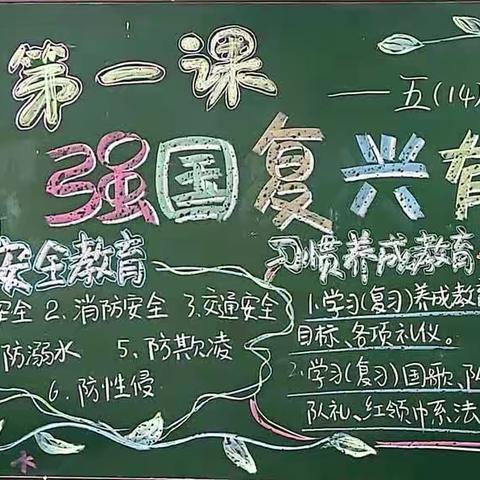 第一课
——五(14)
强国复兴有
安全教育
安全 2、消防安全 3、交通安全
防溺水 5、防欺凌
6、防性侵
习惯养成教育
1、学习(复习)养成教育
目标、各项礼仪。
2、学习(复习)国歌、队
队礼、红领巾系法